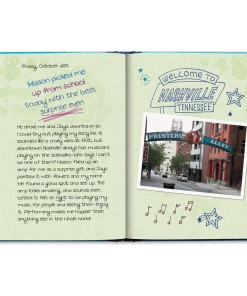 Friday, October 21st
Mason picked me
up from school
today with the best
surprise ever!
He drove me and Jaya downtown so
I could try out playing my song like. It
sounds like a crazy idea at first, but
downtown Nashville always has musicians
playing on the sidewalks who says I can't
be one of them? Mason fixed up an
amp for me as a surprise gift and Jaya
painted it with flowers and my name.
We found a good spot and set up. The
amp looks amazing, and sounds even
better. It felt so right to be playing my
music for people and seeing them enjoy
it. Performing makes me happier than
anything else in the whole world!
WELCOME TO
NASHVILLE
TENNESSEE
PRINTERS
ALLEY